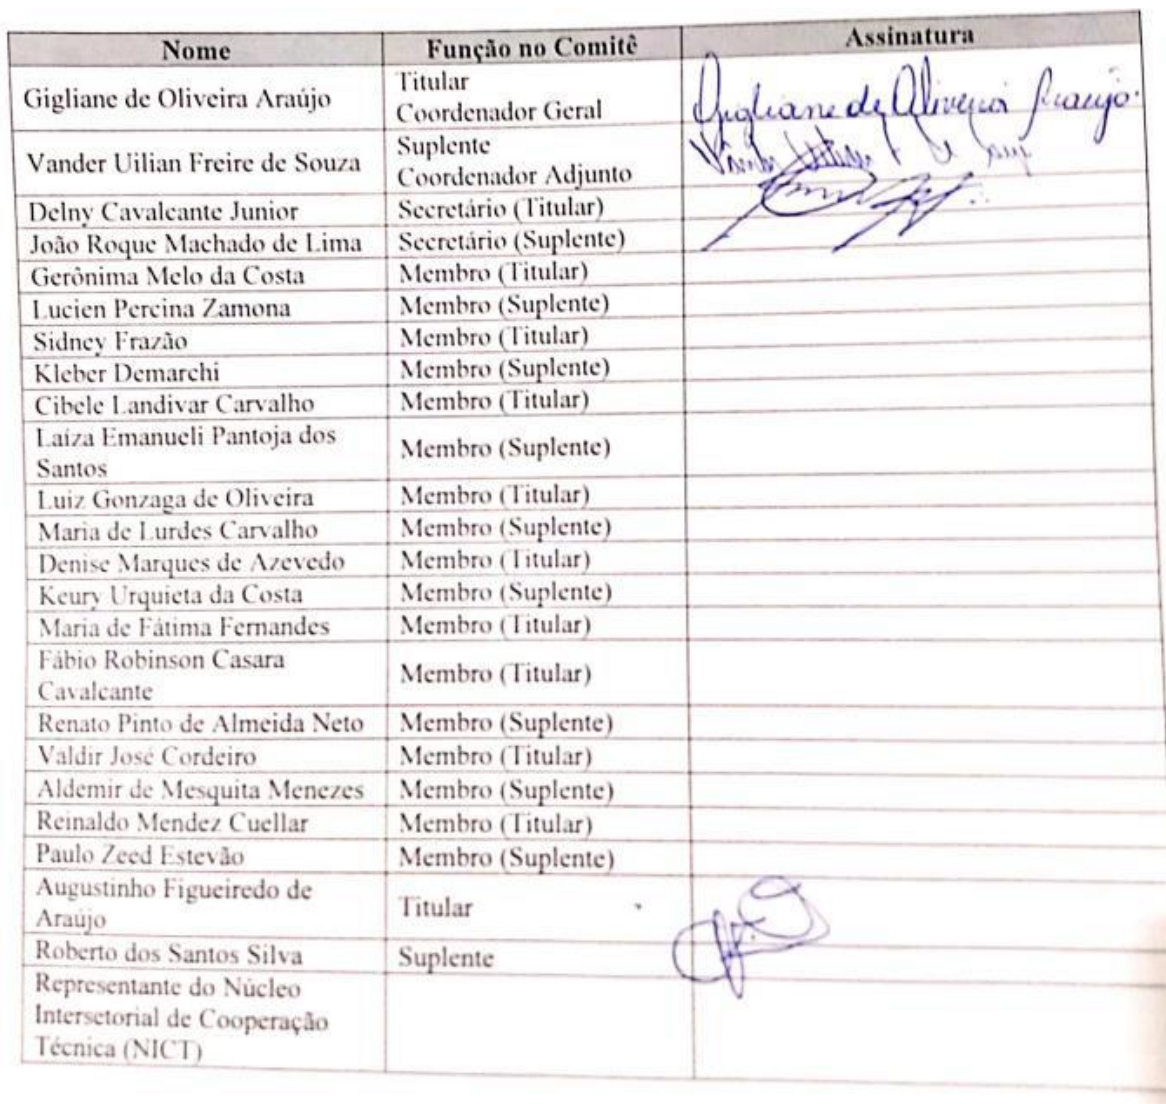 Nome Função no Comitê Assinatura
Gigliane de Oliveira Araújo Titular
Coordenador Geral Gigliane de Oliveira Araujo.
Vander Uilian Freire de Souza Suplente
Coordenador Adjunto
Delny Cavalcante Junior Secretário (Titular)
João Roque Machado de Lima Secretário (Suplente)
Gerônima Melo da Costa Membro (Titular)
Lucien Percina Zamona Membro (Suplente)
Sidney Frazão Membro (Titular)
Kleber Demarchi Membro (Suplente)
Cibele Landivar Carvalho Membro (Titular)
Laíza Emanueli Pantoja dos
Santos Membro (Suplente)
Luiz Gonzaga de Oliveira Membro (Titular)
Maria de Lurdes Carvalho Membro (Suplente)
Denise Marques de Azevedo Membro (Titular)
Keury Urquieta da Costa Membro (Suplente)
Maria de Fátima Fernandes Membro (Titular)
Fábio Robinson Casara
Cavalcante Membro (Titular)
Renato Pinto de Almeida Neto Membro (Suplente)
Valdir José Cordeiro Membro (Titular)
Aldemir de Mesquita Menezes Membro (Suplente)
Reinaldo Mendez Cuellar Membro (Titular)
Paulo Zeed Estevão Membro (Suplente)
Augustinho Figueiredo de
Araújo Titular
Roberto dos Santos Silva Suplente
Representante do Núcleo
Intersetorial de Cooperação
Técnica (NICT)